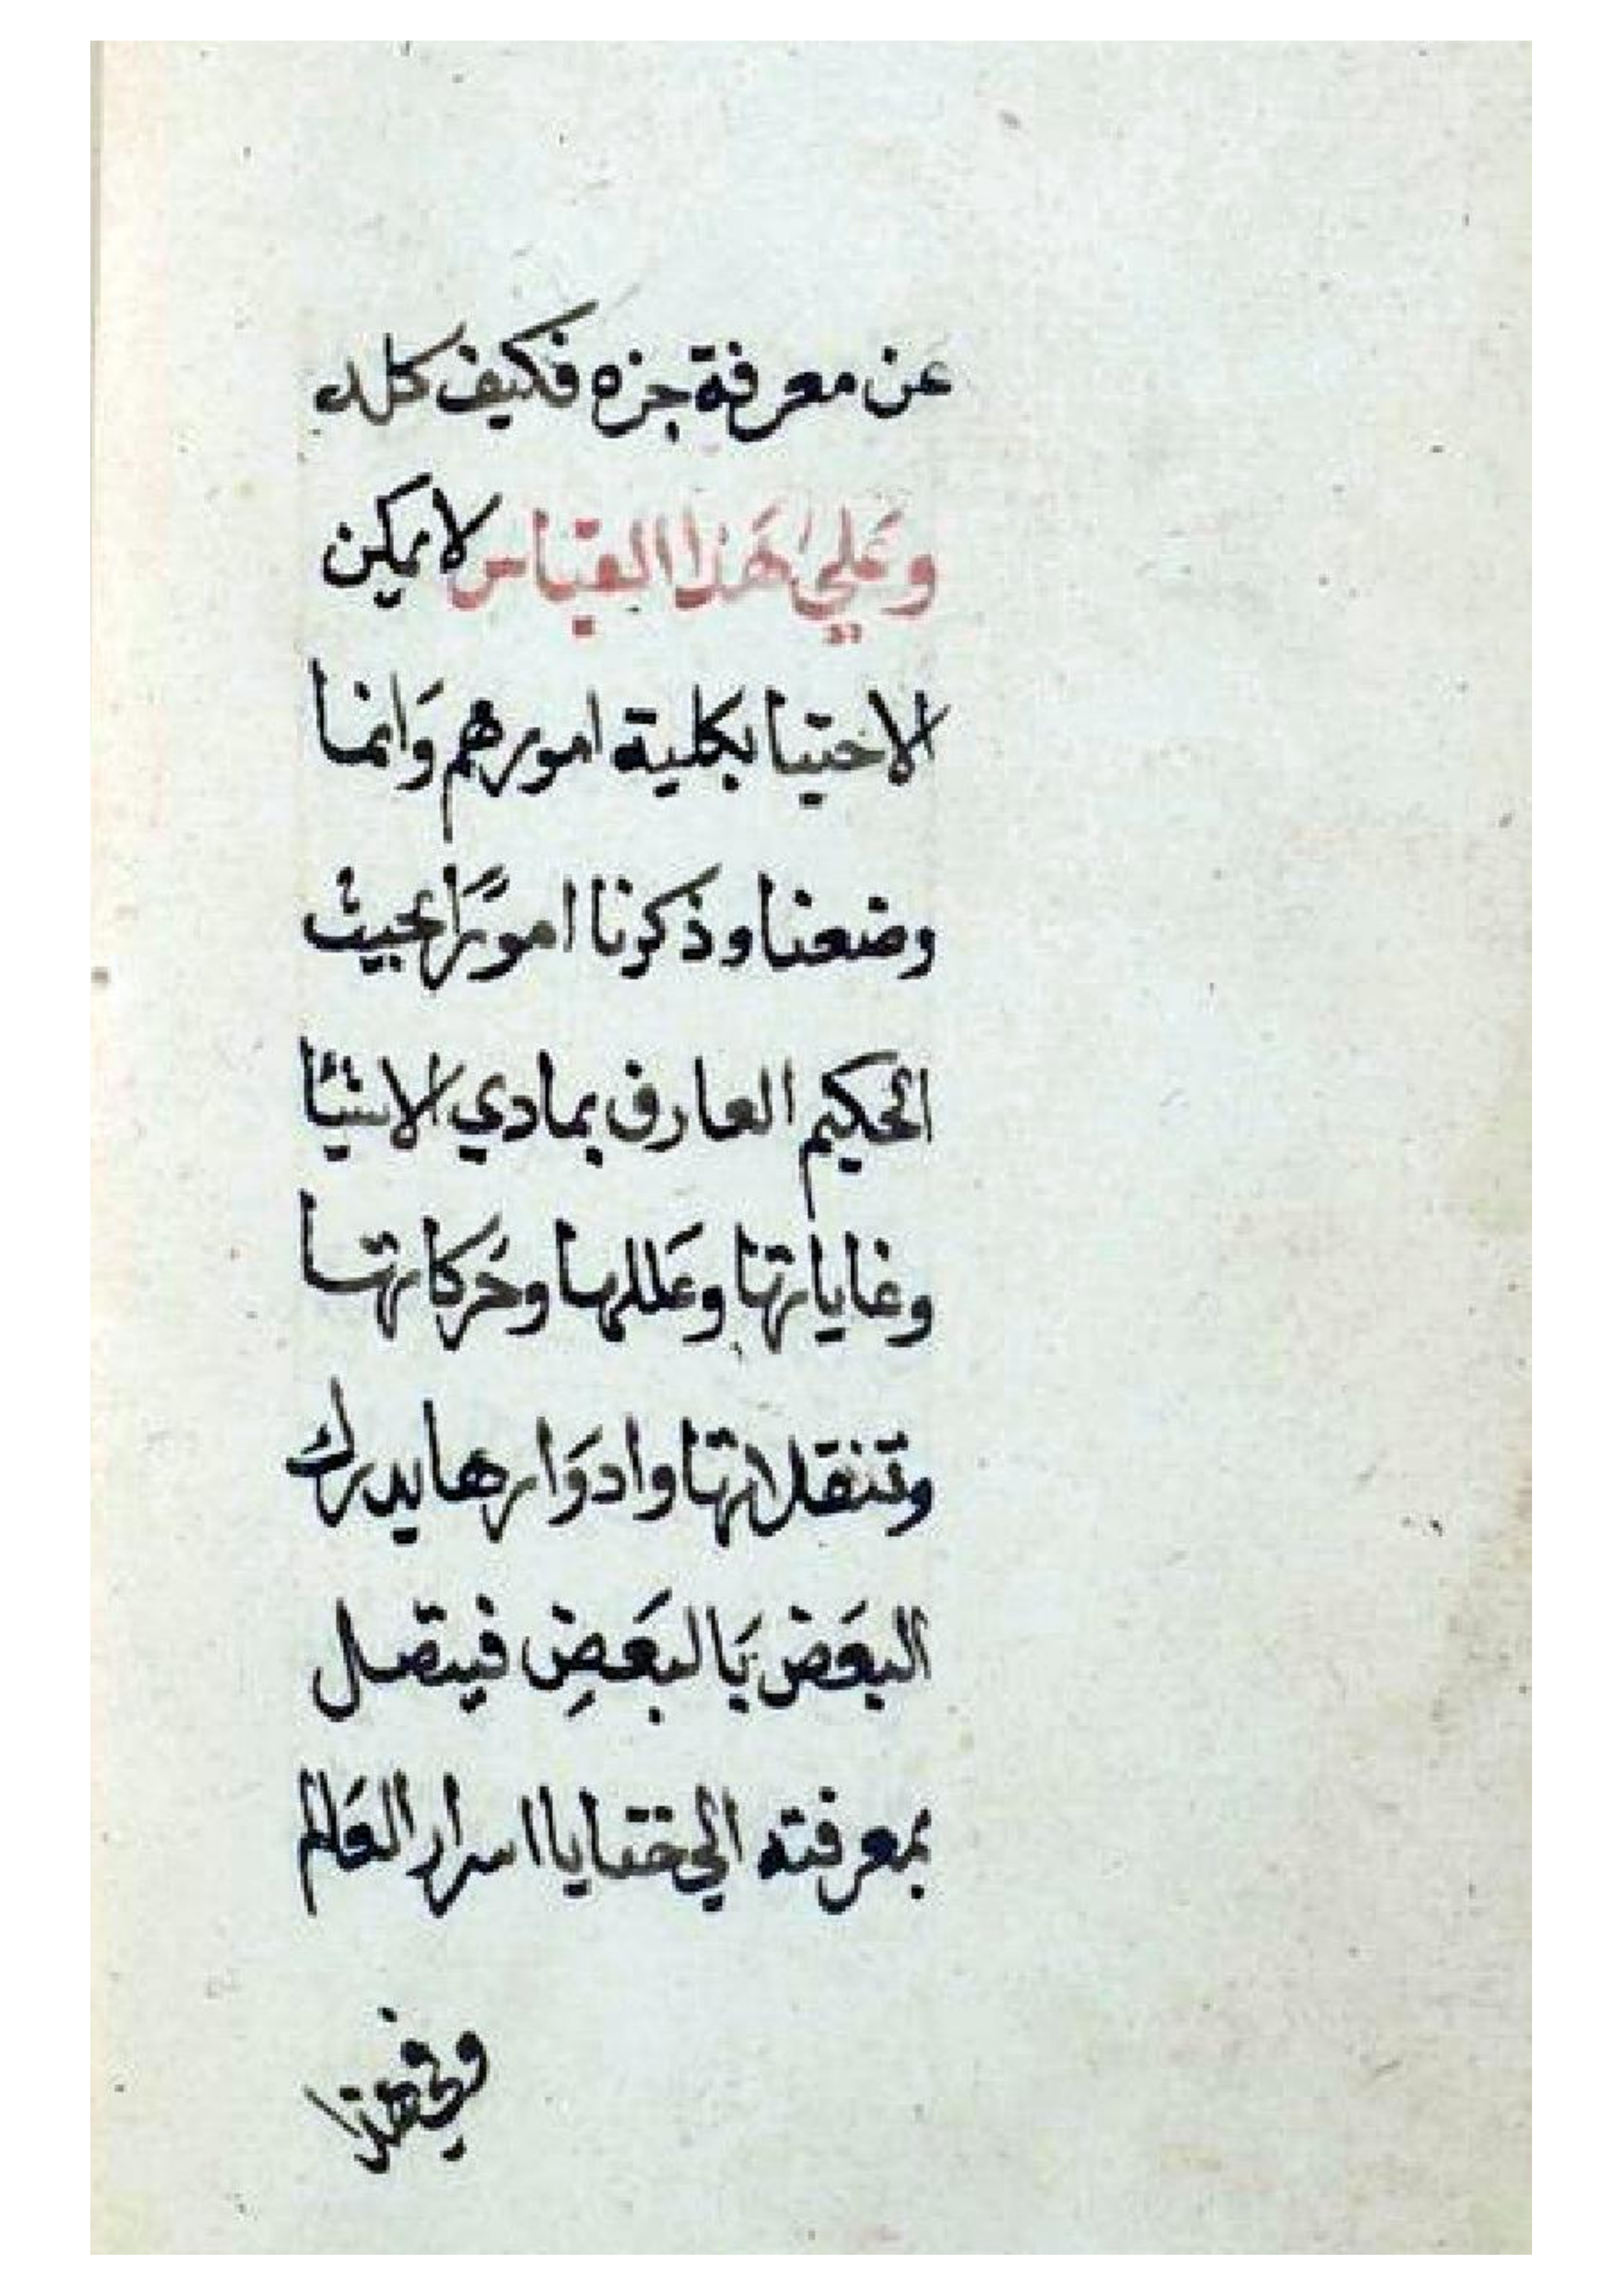 عن معرفة جزه فكيف كله
وعَلي هَذا القياس لا يمكن
الاختيا بكلية امورهم وَانما
وضعنا وذكرنا امورًا بحيث
الحكيم العارف بمادي الاشيا
وغاياتها وعَللها وحَركاتها
وتنقلاتها وادوَارها يدرك
البعَض بَالبعَضِ فيتصل
بمعرفته الي ختايا اسرار العَالم
وفي هذا